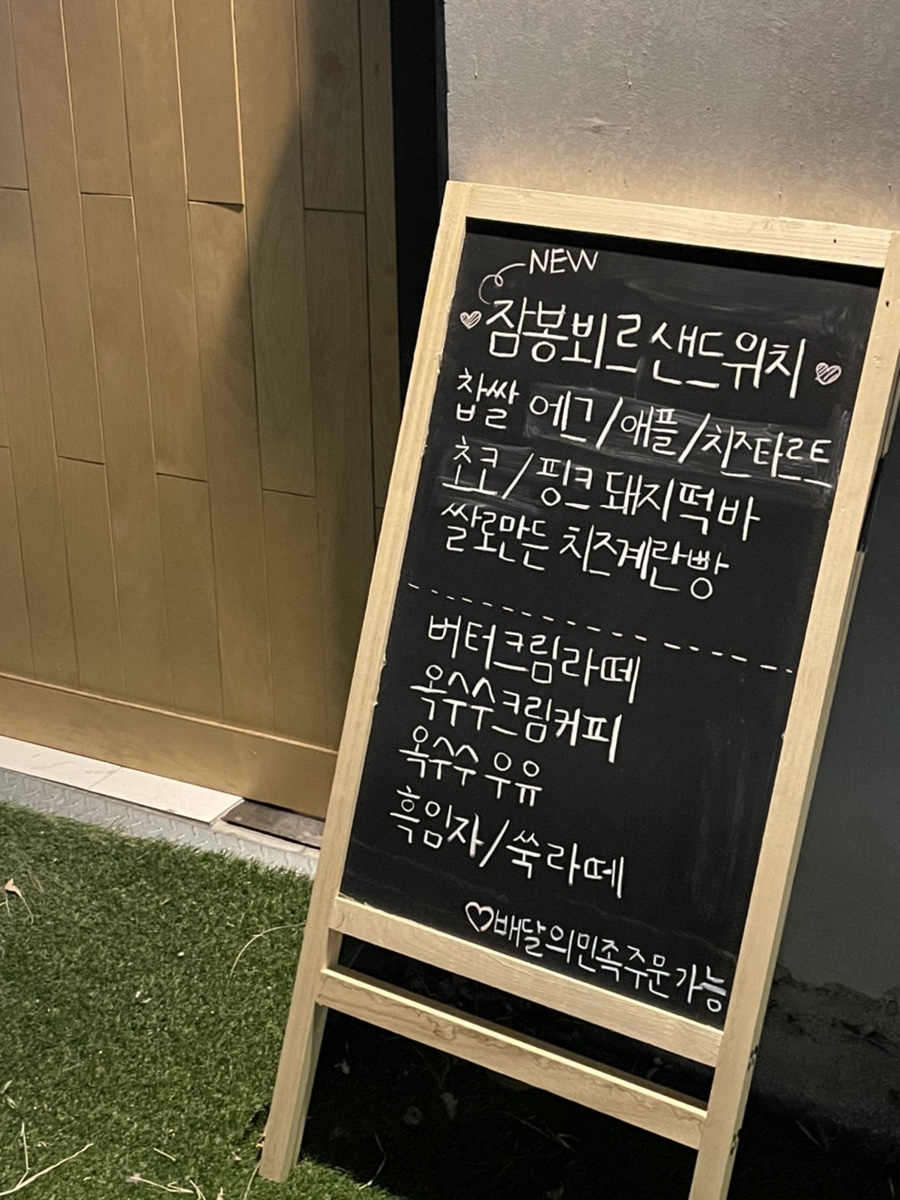 NEW
잠봉뵈르샌드위치
찹쌀 에그/애플/치즈타르트
초코/핑크돼지떡바
쌀로만든 치즈계란빵
버터크림라떼
옥수수크림커피
옥수수우유
흑임자/쑥라떼
♡배달의민족주문가능